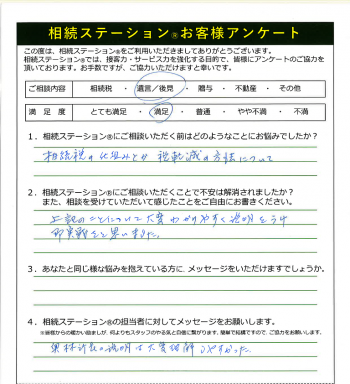 相続ステーション®お客様アンケート
この度は、相続ステーション®をご利用いただきましてありがとうございます。
相続ステーション®では、接客力・サービス力を強化する目的で、皆様にアンケートのご協力を
頂いております。お手数ですが、ご協力いただけますと幸いです。
ご相談内容 相続税 ・ 遺言／後見 ・ 贈与 ・ 不動産 ・ その他
満足度 とても満足 ・ 満足 ・ 普通 ・ やや不満 ・ 不満
1．相続ステーション®にご相談いただく前はどのようなことにお悩みでしたか？
相続税の仕組みとか 税軽減の方法について
2．相続ステーション®にご相談いただくことで不安は解消されましたか？
また、相談を受けていただいて感じたことをご自由にお書きください。
上記のことについて大変わかりやすく説明をうけ
即実行をと思いました。
3．あなたと同じ様な悩みを抱えている方に メッセージをいただけますでしょうか。
4．相続ステーション®の担当者に対してメッセージをお願いします。
※皆様からの暖かい励ましが、何よりもスタッフのやる気と自信に繋がります。簡単で結構ですので、ご協力をお願いします。
の説明は大変理解しやすかった。